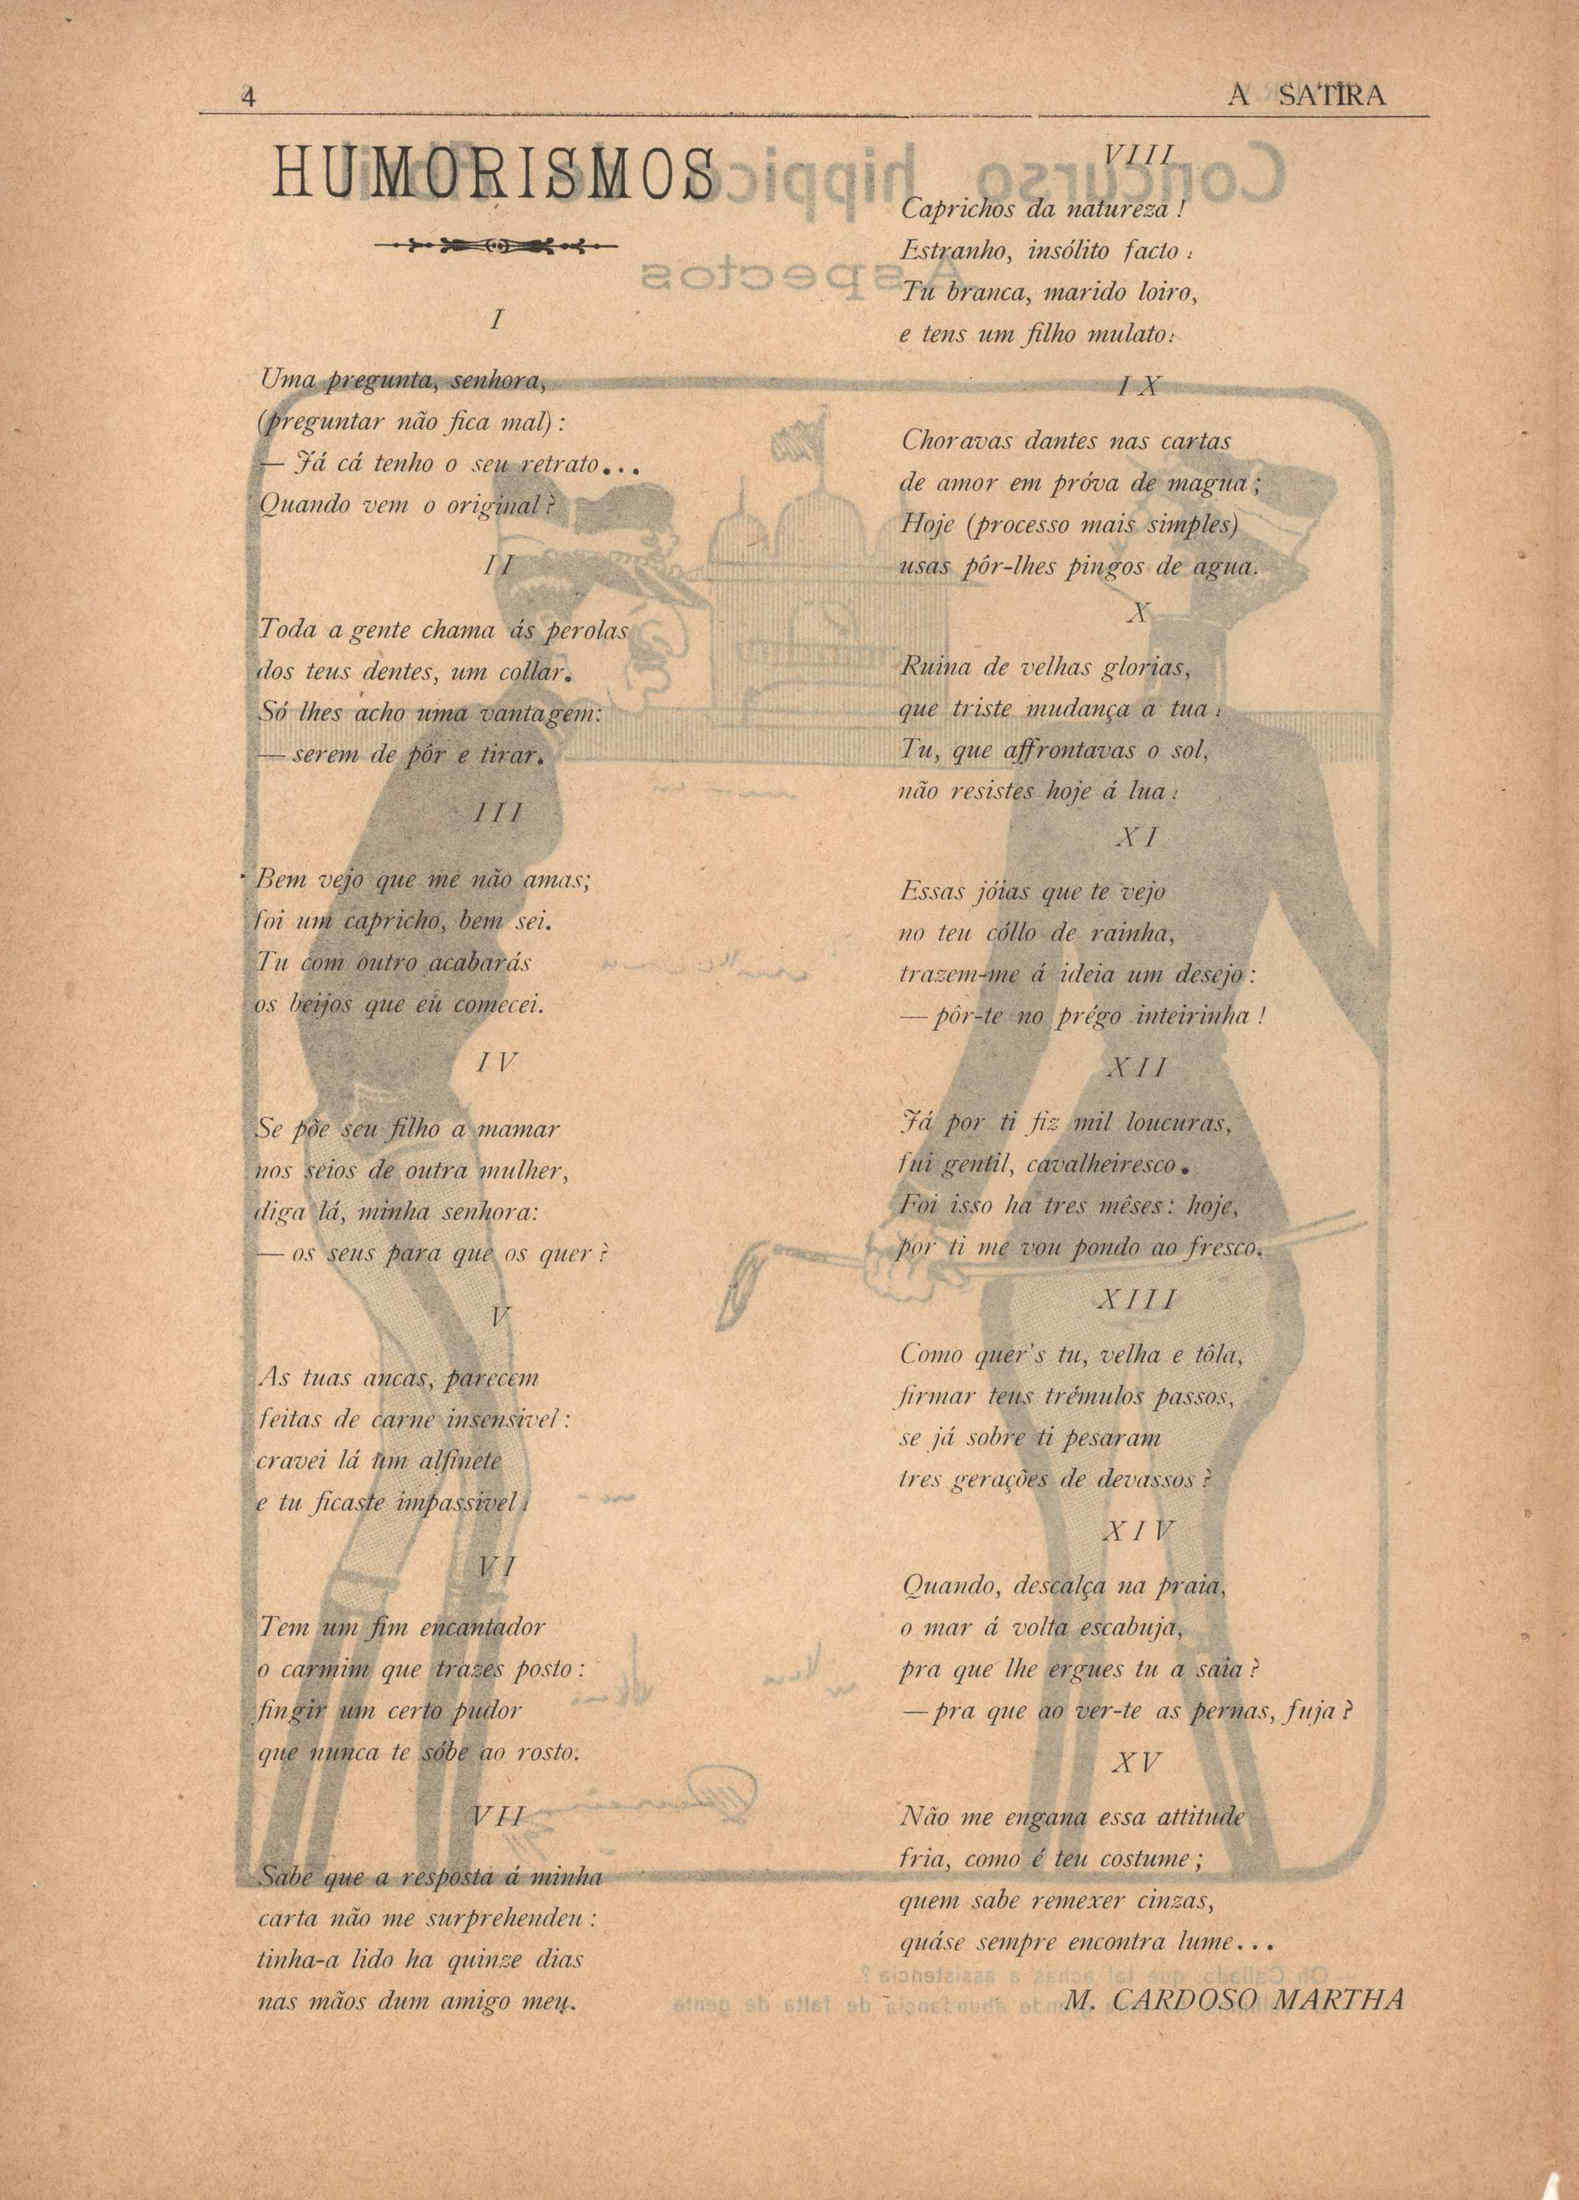 4
A SATIRA
HUMORISMOS
I
Uma pregunta, senhora,
(preguntar não fica mal):
— Já cá tenho o seu retrato...
Quando vem o original?
II
Toda a gente chama ás perolas
dos teus dentes, um collar.
Só lhes acho uma vantagem:
— serem de pôr e tirar.
III
Bem vejo que me não amas;
foi um capricho, bem sei.
Tu com outro acabarás
os beijos que eu comecei.
IV
Se põe seu filho a mamar
nos seios de outra mulher,
diga lá, minha senhora:
— os seus para que os quer?
V
As tuas ancas, parecem
feitas de carne insensivel:
cravei lá um alfinete
e tu ficaste impassivel!
VI
Tem um fim encantador
o carmim que trazes posto:
fingir um certo pudor
que nunca te sóbe ao rosto.
VII
Sabe que a resposta á minha
carta não me surprehendeu:
tinha-a lido ha quinze dias
nas mãos dum amigo meu.
VIII
Caprichos da natureza!
Estranho, insólito facto:
Tu branca, marido loiro,
e tens um filho mulato:
IX
Choravas dantes nas cartas
de amor em próva de magua;
Hoje (processo mais simples)
usas pôr-lhes pingos de agua.
X
Ruina de velhas glorias,
que triste mudança a tua:
Tu, que affrontavas o sol,
não resistes hoje á lua:
XI
Essas jóias que te vejo
no teu cóllo de rainha,
trazem-me á ideia um desejo:
— pôr-te no prégo inteirinha!
XII
Já por ti fiz mil loucuras,
fui gentil, cavalheiresco.
Foi isso ha tres mêses: hoje,
por ti me vou pondo ao fresco.
XIII
Como quer's tu, velha e tôla,
firmar teus trémulos passos,
se já sobre ti pesaram
tres gerações de devassos?
XIV
Quando, descalça na praia,
o mar á volta escabuja,
pra que lhe ergues tu a saia?
— pra que ao ver-te as pernas, fuja?
XV
Não me engana essa attitude
fria, como é teu costume;
quem sabe remexer cinzas,
quáse sempre encontra lume...
M. CARDOSO MARTHA